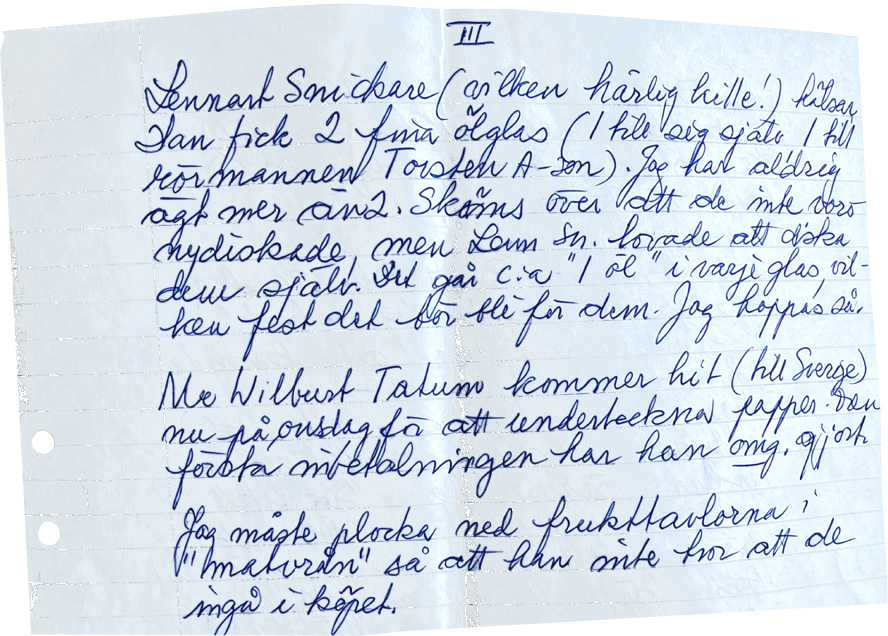 III
Lennart Snickare (vilken härlig kille!) hälsar
Han fick 2 fina ölglas (1 till sig själv 1 till
rörmannen Torsten A-son). Jag har aldrig
ägt mer än 2. Skäms över att de inte voro
nydiskade, men Lenn Sn. lovade att diska
dem själv. Det går c:a "1 öl" i varje glas, vil-
ken fest det bör bli för dem. Jag hoppas så.
Mr Wilburt Tatum kommer hit (till Sverge)
nu på onsdag för att underteckna papper. Den
första inbetalningen har han omg. gjort.
Jag måste plocka ned frukttavlorna i
"matvrån" så att han inte tror att de
ingå i köpet.